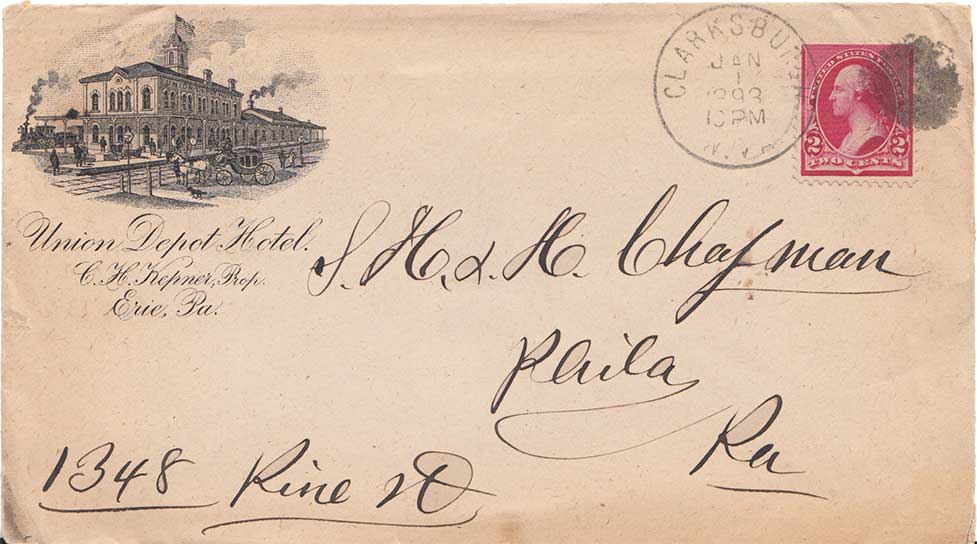 Union Depot Hotel.
C. H. Kepner, Prop.
Erie, Pa.
CLARKSBURG
JAN
1
1893
10 PM
W.VA.
UNITED STATES POSTAGE
2 2
TWO CENTS
S. H. & H. Chapman
Phila
Pa
1348 Pine St